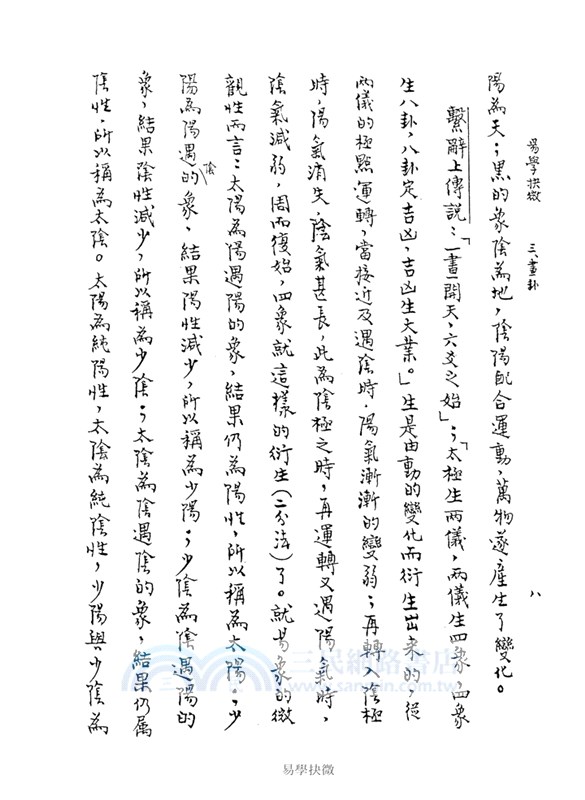 易學抉微　三、畫卦　八
陽為天；黑的象陰為地，陰陽配合運動，萬物遂產生了變化。
繫辭上傳説：「一畫開天，六爻之始」；「太極生兩儀，兩儀生四象，四象
生八卦，八卦定吉凶，吉凶生大業。」生是由動的變化而衍生出来的，從
兩儀的極點運轉，當接近及遇陰時，陽氣漸漸的變弱；再轉入陰極
時，陽氣消失，陰氣甚長，此為陰極之時，再運轉又遇陽氣時，
陰氣減弱，周而復始，四象就這樣的衍生（二分法）了。就易象的微
觀性而言：太陽為陽遇陽的象，結果仍為陽性，所以稱為太陽。；少
陽為陽遇陰的象，結果陽性減少，所以稱為少陽；少陰為陰遇陽的
象，結果陰性減少，所以稱為少陰；太陰為陰遇陰的象，結果仍属
陰性，所以稱為太陰。太陽為純陽性，太陰為純陰性，少陽與少陰為
三民網路書店
www.sanmin.com.tw
易學抉微